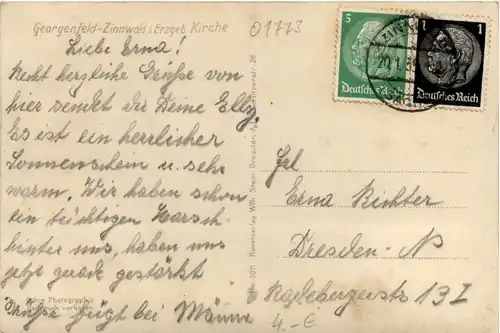 Georgenfeld-Zinnwald i. Erzgeb. Kirche
01773
Liebe Erna!
Recht herzliche Grüße von
hier sendet dir Deine Elly.
Es ist ein herrlicher
Sonnenschein u. sehr
warm. Wir haben schon
ein tüchtigen Marsch
hinter uns, haben uns
jetzt gerade gestärkt
Grüße fügt bei
5
Deutsches Reich
1
Deutsches Reich
20.1.
Kunstverlag Wilh. Stein Dresden-A.
Echte Photographie
Frl
Erna Richter
Dresden-N
Radebergerstr 13 I
4.-E